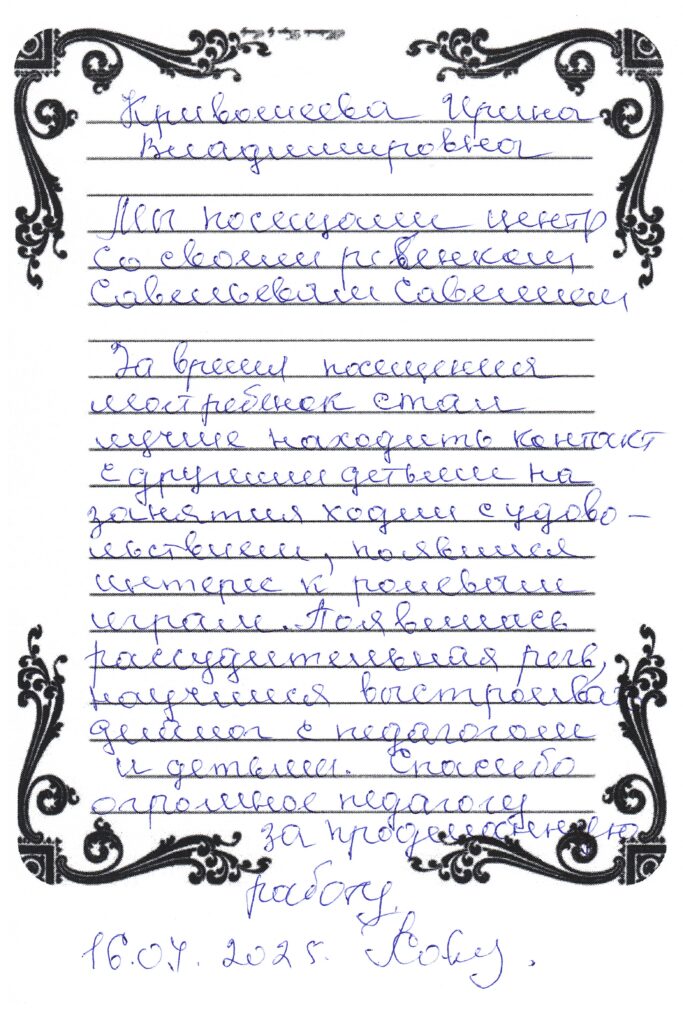 Кривошеева Ирина
Владимировна
Мы посещали центр
со своим ребенком,
Савельевым Савелием
За время посещения
мой ребенок стал
лучше находить контакт
с другими детьми на
занятия ходил с удово-
льствием, появился
интерес к ролевым
играм. Появилась
рассудительная речь,
научился выстраива
диалог с педагогом
и детьми. Спасибо
огромное педагогу
за проделанную
работу.
16.04.2025г.